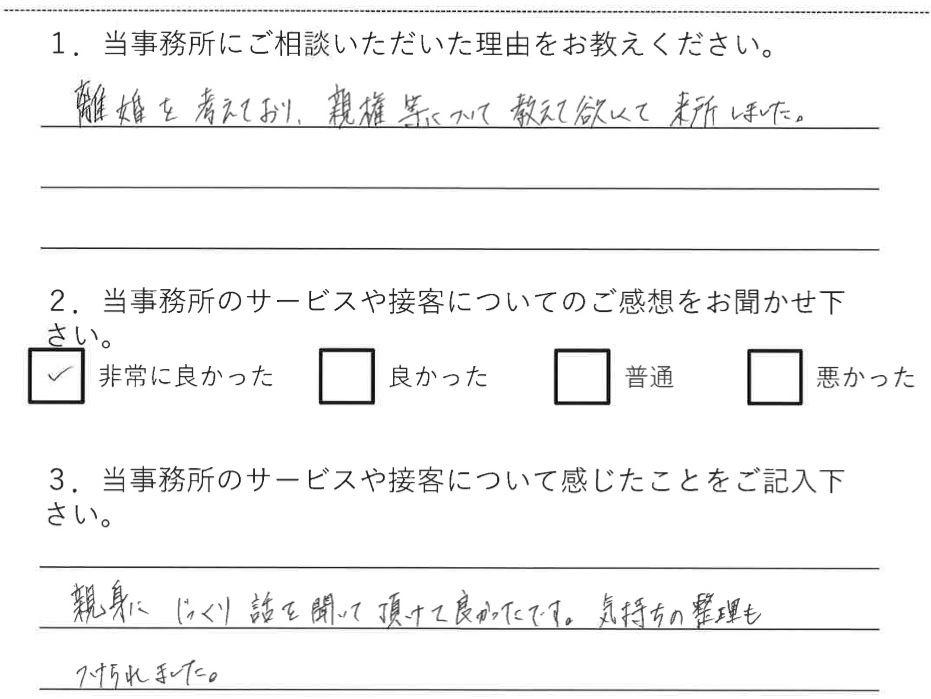 1．当事務所にご相談いただいた理由をお教えください。
離婚を考えており、親権等について教えて欲しくて来所しました。
2．当事務所のサービスや接客についてのご感想をお聞かせ下
さい。
✓ 非常に良かった 良かった 普通 悪かった
3．当事務所のサービスや接客について感じたことをご記入下
さい。
親身にじっくり話を聞いて頂けて良かったです。気持ちの整理も
つけられました。